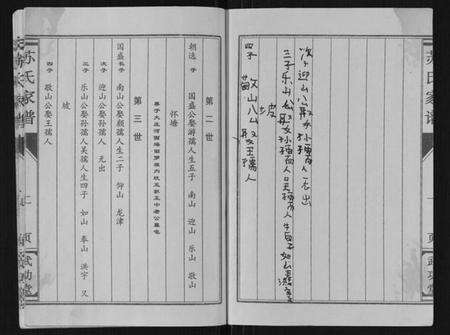 次子 迎山公娶孙孺人 无出
三子 乐山公娶孙孺人吴孺人生四子 如山
坡
四子 敬山公又娶王孺人
苏氏家谱
武功堂
第二世
朝选 子 国盛公娶游孺人生五子 南山 迎山 乐山 敬山
怀塘
第三世
国盛长子 南山公娶颜孺人生二子 仰山 龙津
次子 迎山公娶孙孺人 无出
三子 乐山公娶孙孺人吴孺人生四子 如山 泰山 洪宇 又
坡
四子 敬山公娶王孺人
苏氏家谱
二页
武功堂